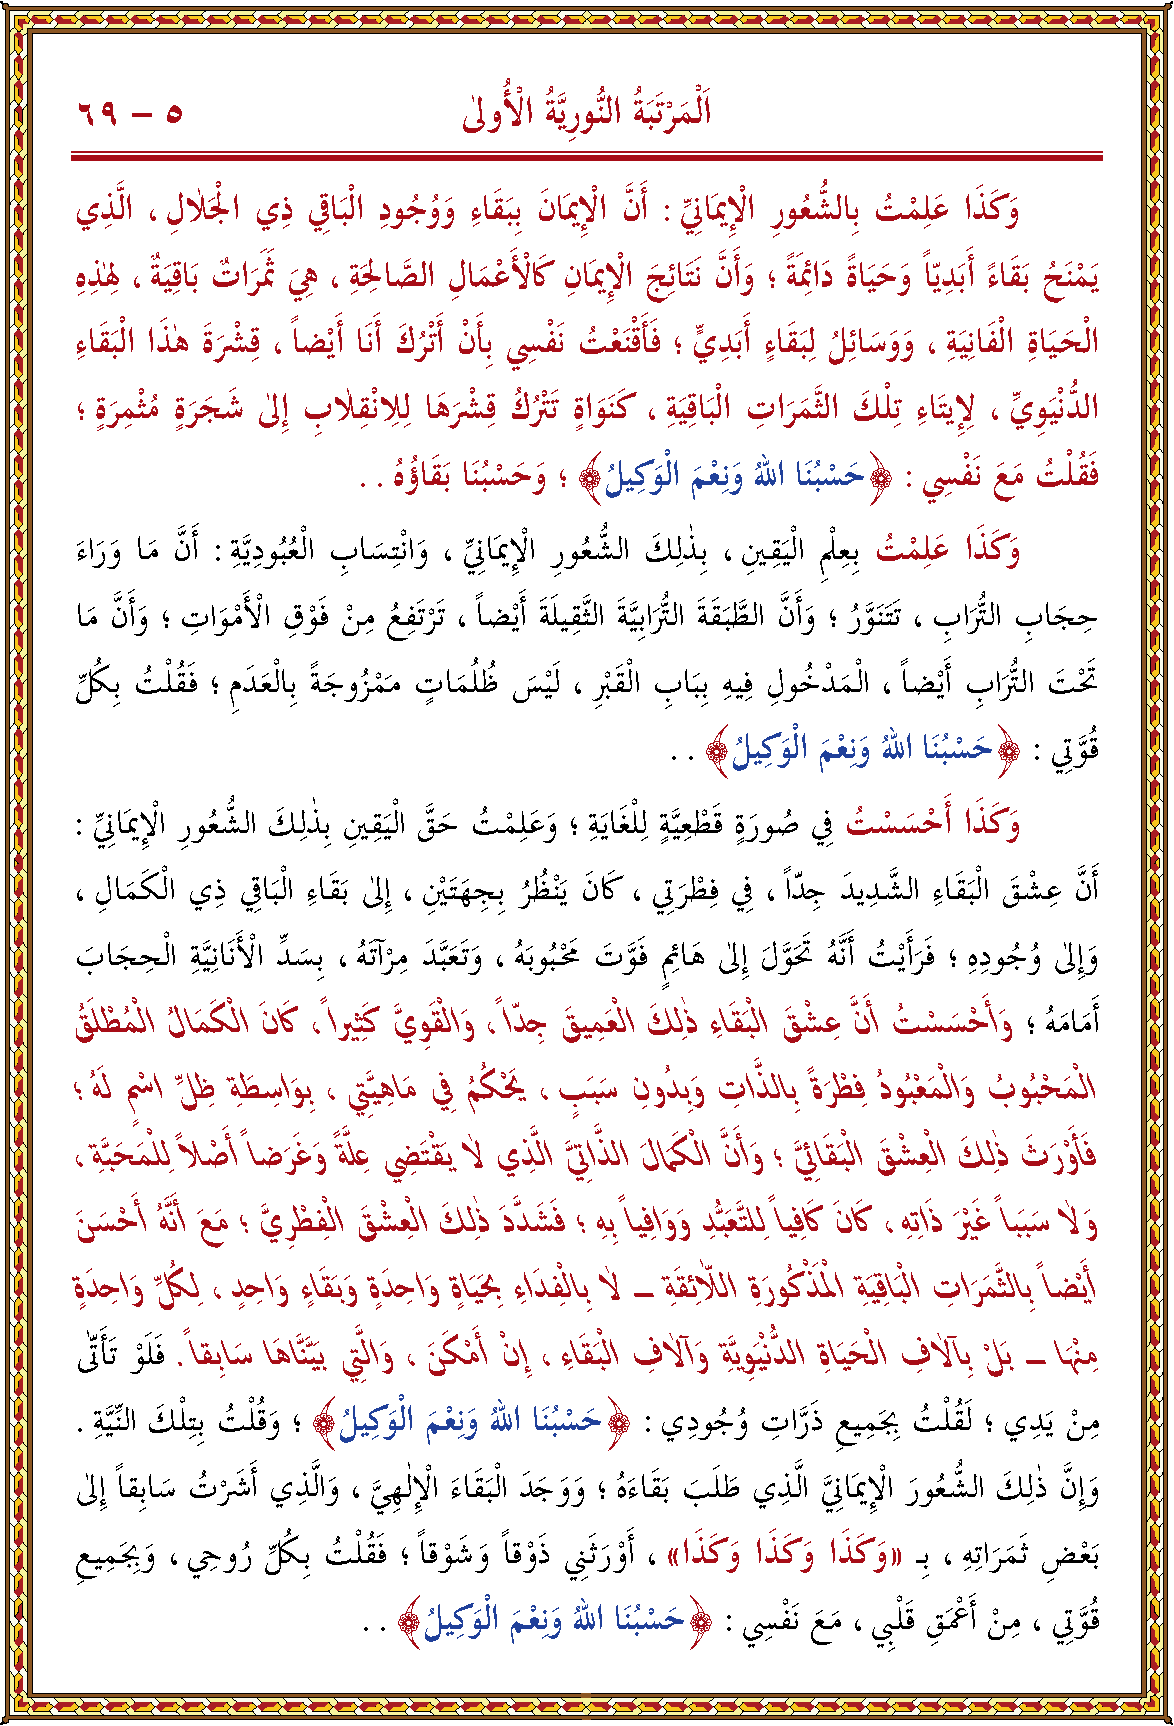 اَلْمَرْتَبَةُ النُّورِيَّةُ الْأُولىٰ
٥ – ٦٩
وَكَذَا عَلِمْتُ بِالشُّعُورِ الْإِيمَانِيِّ : أَنَّ الْإِيمَانَ بِبَقَاءِ وَوُجُودِ الْبَاقِي ذِي الْجَلاٰلِ ، الَّذِي
يَمْنَحُ بَقَاءً أَبَدِيّاً وَحَيَاةً دَائِمَةً ؛ وَأَنَّ نَتَائِجَ الْإِيمَانِ كَالْأَعْمَالِ الصَّالِحَةِ ، هِيَ ثَمَرَاتٌ بَاقِيَةٌ ، لِهٰذِهِ
الْحَيَاةِ الْفَانِيَةِ ، وَوَسَائِلُ لِبَقَاءٍ أَبَدِيٍّ ؛ فَأَقْنَعْتُ نَفْسِي بِأَنْ أَتْرُكَ أَنَا أَيْضاً ، قِشْرَةَ هٰذَا الْبَقَاءِ
الدُّنْيَوِيِّ ، لِإِيتَاءِ تِلْكَ الثَّمَرَاتِ الْبَاقِيَةِ ، كَنَوَاةٍ تَتْرُكُ قِشْرَهَا لِلِانْقِلاٰبِ إِلىٰ شَجَرَةٍ مُثْمِرَةٍ ؛
فَقُلْتُ مَعَ نَفْسِي : ﴿حَسْبُنَا اللهُ وَنِعْمَ الْوَكِيلُ﴾ ؛ وَحَسْبُنَا بَقَاؤُهُ . .
وَكَذَا عَلِمْتُ بِعِلْمِ الْيَقِينِ ، بِذٰلِكَ الشُّعُورِ الْإِيمَانِيِّ ، وَانْتِسَابِ الْعُبُودِيَّةِ : أَنَّ مَا وَرَاءَ
حِجَابِ التُّرَابِ ، تَتَنَوَّرُ ؛ وَأَنَّ الطَّبَقَةَ التُّرَابِيَّةَ الثَّقِيلَةَ أَيْضاً ، تَرْتَفِعُ مِنْ فَوْقِ الْأَمْوَاتِ ؛ وَأَنَّ مَا
تَحْتَ التُّرَابِ أَيْضاً ، الْمَدْخُولِ فِيهِ بِبَابِ الْقَبْرِ ، لَيْسَ ظُلُمَاتٍ مَمْزُوجَةً بِالْعَدَمِ ؛ فَقُلْتُ بِكُلِّ
قُوَّتِي : ﴿حَسْبُنَا اللهُ وَنِعْمَ الْوَكِيلُ﴾ . .
وَكَذَا أَحْسَسْتُ فِي صُورَةٍ قَطْعِيَّةٍ لِلْغَايَةِ ؛ وَعَلِمْتُ حَقَّ الْيَقِينِ بِذٰلِكَ الشُّعُورِ الْإِيمَانِيِّ :
أَنَّ عِشْقَ الْبَقَاءِ الشَّدِيدَ جِدّاً ، فِي فِطْرَتِي ، كَانَ يُنْظُرُ بِجِهَتَيْنِ ، إِلىٰ بَقَاءِ الْبَاقِي ذِي الْكَمَالِ ،
وَإِلىٰ وُجُودِهِ ؛ فَرَأَيْتُ أَنَّهُ تَحَوَّلَ إِلىٰ هَائِمٍ فَوَّتَ مَحْبُوبَهُ ، وَتَعَبَّدَ مِرْآتَهُ ، بِسَدِّ الْأَنَانِيَّةِ الْحِجَابَ
أَمَامَهُ ؛ وَأَحْسَسْتُ أَنَّ عِشْقَ الْبَقَاءِ ذٰلِكَ الْعَمِيقَ جِدّاً ، وَالْقَوِيَّ كَثِيراً ، كَانَ الْكَمَالُ الْمُطْلَقُ
الْمَحْبُوبُ وَالْمَعْبُودُ فِطْرَةً بِالذَّاتِ وَبِدُونِ سَبَبٍ ، يَحْكُمُ فِي مَاهِيَّتِي ، بِوَاسِطَةِ ظِلِّ اسْمٍ لَهُ ؛
فَأَوْرَثَ ذٰلِكَ الْعِشْقَ الْبَقَائِيَّ ؛ وَأَنَّ الْكَمَالَ الذَّاتِيَّ الَّذِي لاٰ يَقْتَضِي عِلَّةً وَغَرَضاً أَصْلاً لِلْمَحَبَّةِ ،
وَلاٰ سَبَباً غَيْرَ ذَاتِهِ ، كَانَ كَافِياً لِلتَّعَبُّدِ وَوَافِياً بِهِ ؛ فَشَدَّدَ ذٰلِكَ الْعِشْقَ الْفِطْرِيَّ ؛ مَعَ أَنَّهُ أَحْسَنَ
أَيْضاً بِالثَّمَرَاتِ الْبَاقِيَةِ الْمَذْكُورَةِ اللّاٰئِقَةِ – لاٰ بِالْفِدَاءِ بِحَيَاةٍ وَاحِدَةٍ وَبَقَاءٍ وَاحِدٍ ، لِكُلِّ وَاحِدَةٍ
مِنْهَا – بَلْ بِآلاٰفِ الْحَيَاةِ الدُّنْيَوِيَّةِ وَآلاٰفِ الْبَقَاءِ ، إِنْ أَمْكَنَ ، وَالَّتِي بَيَّنَّاهَا سَابِقاً . فَلَوْ تَأَتّٰى
مِنْ يَدِي ؛ لَقُلْتُ بِجَمِيعِ ذَرَّاتِ وُجُودِي : ﴿حَسْبُنَا اللهُ وَنِعْمَ الْوَكِيلُ﴾ ؛ وَقُلْتُ بِتِلْكَ النِّيَّةِ .
وَإِنَّ ذٰلِكَ الشُّعُورَ الْإِيمَانِيَّ الَّذِي طَلَبَ بَقَاءَهُ ؛ وَوَجَدَ الْبَقَاءَ الْإِلٰهِيَّ ، وَالَّذِي أَشَرْتُ سَابِقاً إِلىٰ
بَعْضِ ثَمَرَاتِهِ ، بِـ «وَكَذَا وَكَذَا وَكَذَا» ، أَوْرَثَنِي ذَوْقاً وَشَوْقاً ؛ فَقُلْتُ بِكُلِّ رُوحِي ، وَبِجَمِيعِ
قُوَّتِي ، مِنْ أَعْمَقِ قَلْبِي ، مَعَ نَفْسِي : ﴿حَسْبُنَا اللهُ وَنِعْمَ الْوَكِيلُ﴾ . .